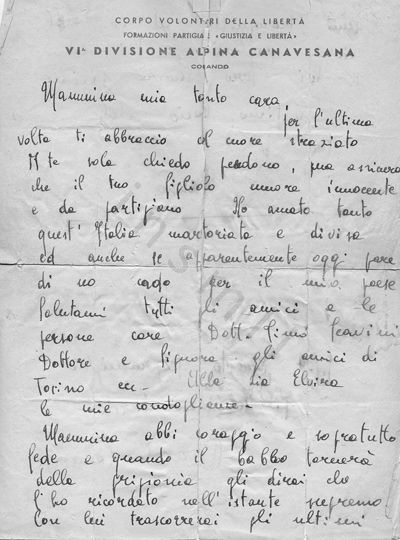 CORPO VOLONTARI DELLA LIBERTÀ
FORMAZIONI PARTIGIANE «GIUSTIZIA E LIBERTÀ»
VIª DIVISIONE ALPINA CANAVESANA
COMANDO
Mammina mia tanto cara,
per l'ultima
volta ti abbraccio col cuore straziato
A te sola chiedo perdono, ma assicura
che il tuo figliolo muore innocente
e da partigiano Ho amato tanto
quest'Italia martoriata e divisa
ed anche se apparentemente oggi pare
di no cado per il mio paese
Salutami tutti gli amici e le
persone care Dott. Gino
Dottore e Signora gli amici di
Torino ecc- Alla zia Elvira
le mie condoglianze-
Mammina abbi coraggio e sopratutto
fede e quando il babbo tornerà
dalla prigionia gli dirai che
l'ho ricordato nell'istante supremo
Con lui trascorrerai gli ultimi